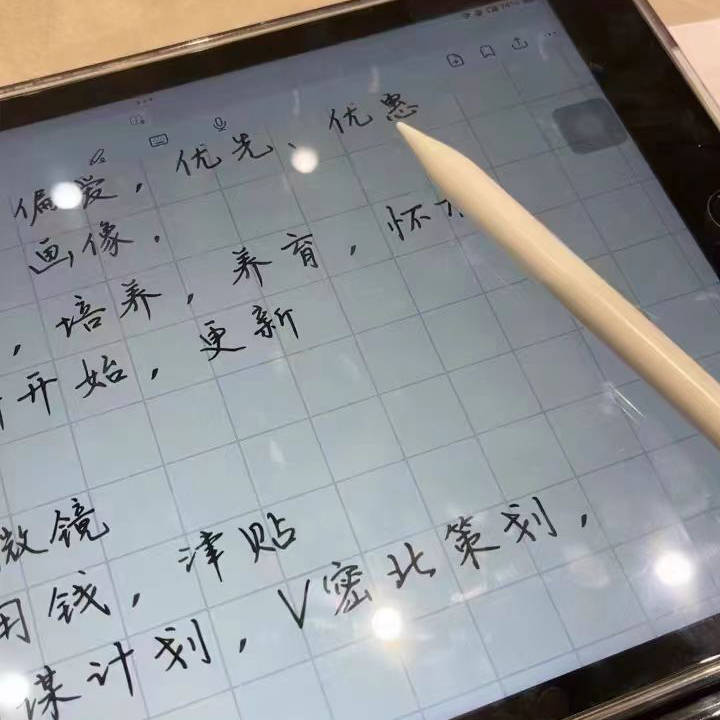 偏爱，优先、优惠
画像．
，培养，养育，怀
开始，更新
微镜
用钱，津贴
谋计划，V密此策划，